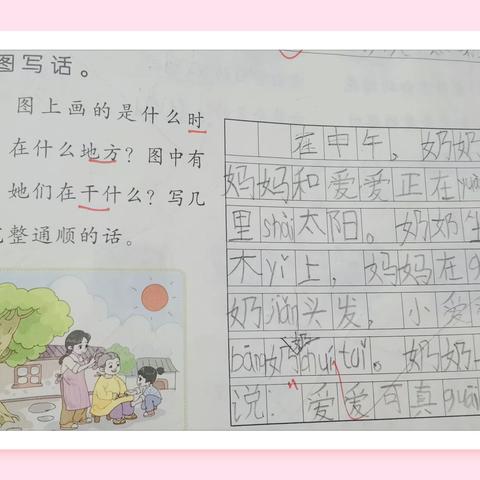 图写话。
图上画的是什么时
在什么地方?图中有
她们在干什么?写几
整通顺的话。
在中午,奶奶
妈妈和爱爱正在yuàn
里shài太阳。奶奶坐
木yǐ上,妈妈在
奶jiǎn头发,小爱
bāng奶奶chuí tuǐ。奶奶
说:爱爱可真guāi